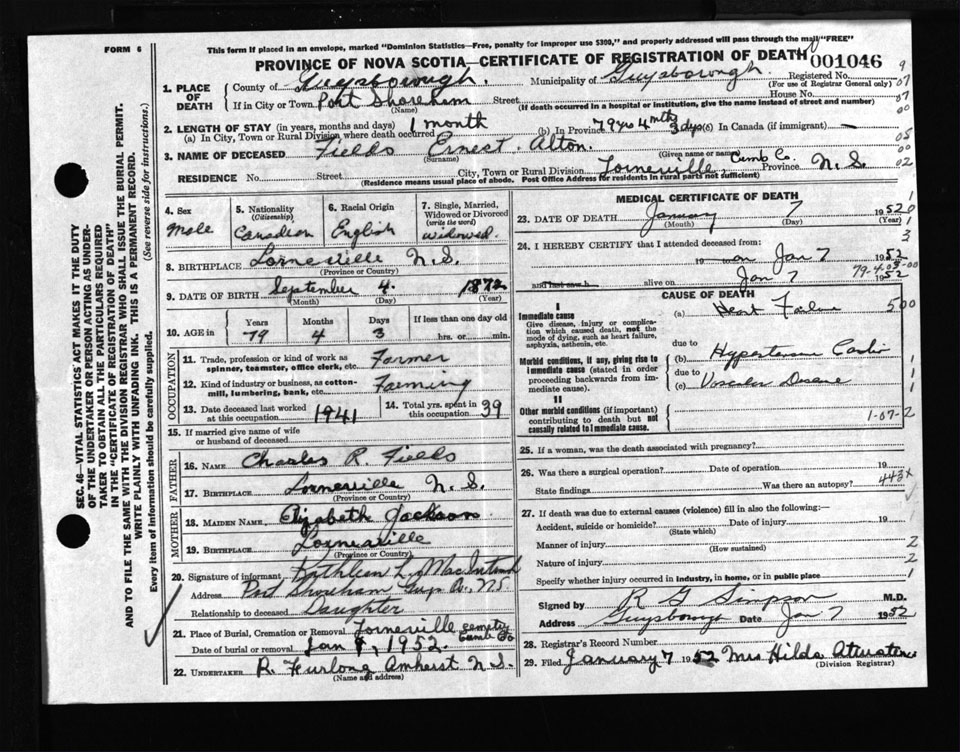 FORM 6
This form if placed in an envelope, marked "Dominion Statistics—Free, penalty for improper use $300," and properly addressed will pass through the mail "FREE"
PROVINCE OF NOVA SCOTIA—CERTIFICATE OF REGISTRATION OF DEATH
001046
1. PLACE OF DEATH
County of Guysborough. Municipality of Guysborough. Registered No.
(For use of Registrar General only)
If in City or Town Port Shoreham Street House No.
(Name) (If death occurred in a hospital or institution, give the name instead of street and number)
2. LENGTH OF STAY (in years, months and days) 1 month
(a) In City, Town or Rural Division where death occurred (b) In Province 79 yrs 4 mths 3 dys (6) In Canada (if immigrant) —
3. NAME OF DECEASED Fields Ernest Alton.
(Surname) (Given name or names)
RESIDENCE No. Street City, Town or Rural Division Lorneville, Cumb Co. Province N.S.
(Residence means usual place of abode. Post Office Address for residents in rural parts not sufficient)
4. Sex
Male
5. Nationality
(Citizenship)
Canadian
6. Racial Origin
English
7. Single, Married, Widowed or Divorced
(write the word)
widowed.
8. BIRTHPLACE Lorneville N.S.
(Province or Country)
9. DATE OF BIRTH September 4. 1872
(Month) (Day) (Year)
10. AGE in
Years Months Days If less than one day old
79 4 3 hrs. or min.
OCCUPATION
11. Trade, profession or kind of work as spinner, teamster, office clerk, etc. Farmer
12. Kind of industry or business, as cotton-mill, lumbering, bank, etc. Farming
13. Date deceased last worked at this occupation 1941
14. Total yrs. spent in this occupation 39
15. If married give name of wife or husband of deceased
FATHER
16. NAME Charles R. Fields
17. BIRTHPLACE Lorneville N.S.
(Province or Country)
MOTHER
18. MAIDEN NAME Elizabeth Jackson
19. BIRTHPLACE Lorneville
(Province or Country)
20. Signature of informant Kathleen L. MacIntosh
Address Port Shoreham Guys Co., N.S.
Relationship to deceased Daughter
21. Place of Burial, Cremation or Removal Lorneville cemetry Cumb Co
Date of burial or removal Jan 9, 1952.
22. UNDERTAKER R. Furlong Amherst N.S.
(Name and address)
MEDICAL CERTIFICATE OF DEATH
23. DATE OF DEATH January 7 1952
(Month) (Day) (Year)
24. I HEREBY CERTIFY that I attended deceased from:
19 to on Jan 7 1952
and last saw h alive on Jan 7 1952
CAUSE OF DEATH
I
Immediate cause
Give disease, injury or complication which caused death, not the mode of dying, such as heart failure, asphyxia, asthenia, etc.
(a) Heart Failure
due to
Morbid conditions, if any, giving rise to immediate cause (stated in order proceeding backwards from immediate cause).
(b) Hypertensive Cardio
due to
(c) Vascular Disease
II
Other morbid conditions (if important) contributing to death but not causally related to immediate cause.
1-07-2
25. If a woman, was the death associated with pregnancy?
26. Was there a surgical operation? Date of operation 19
State findings Was there an autopsy?
443X
27. If death was due to external causes (violence) fill in also the following:—
Accident, suicide or homicide? Date of injury 19
(State which)
Manner of injury
(How sustained)
Nature of injury
Specify whether injury occurred in industry, in home, or in public place
Signed by R G Simpson M.D.
Address Guysborough Date Jan 7 1952
28. Registrar's Record Number
29. Filed January 7 1952 Mrs Hilda
(Division Registrar)
SEC. 46—VITAL STATISTICS ACT MAKES IT THE DUTY
OF THE UNDERTAKER OR PERSON ACTING AS UNDER-
TAKER TO OBTAIN ALL THE PARTICULARS REQUIRED
IN THE "CERTIFICATE OF REGISTRATION OF DEATH"
AND TO FILE THE SAME WITH THE DIVISION REGISTRAR WHO SHALL ISSUE THE BURIAL PERMIT.
WRITE PLAINLY WITH UNFADING INK. THIS IS A PERMANENT RECORD.
Every item of information should be carefully supplied. (See reverse side for instructions.)